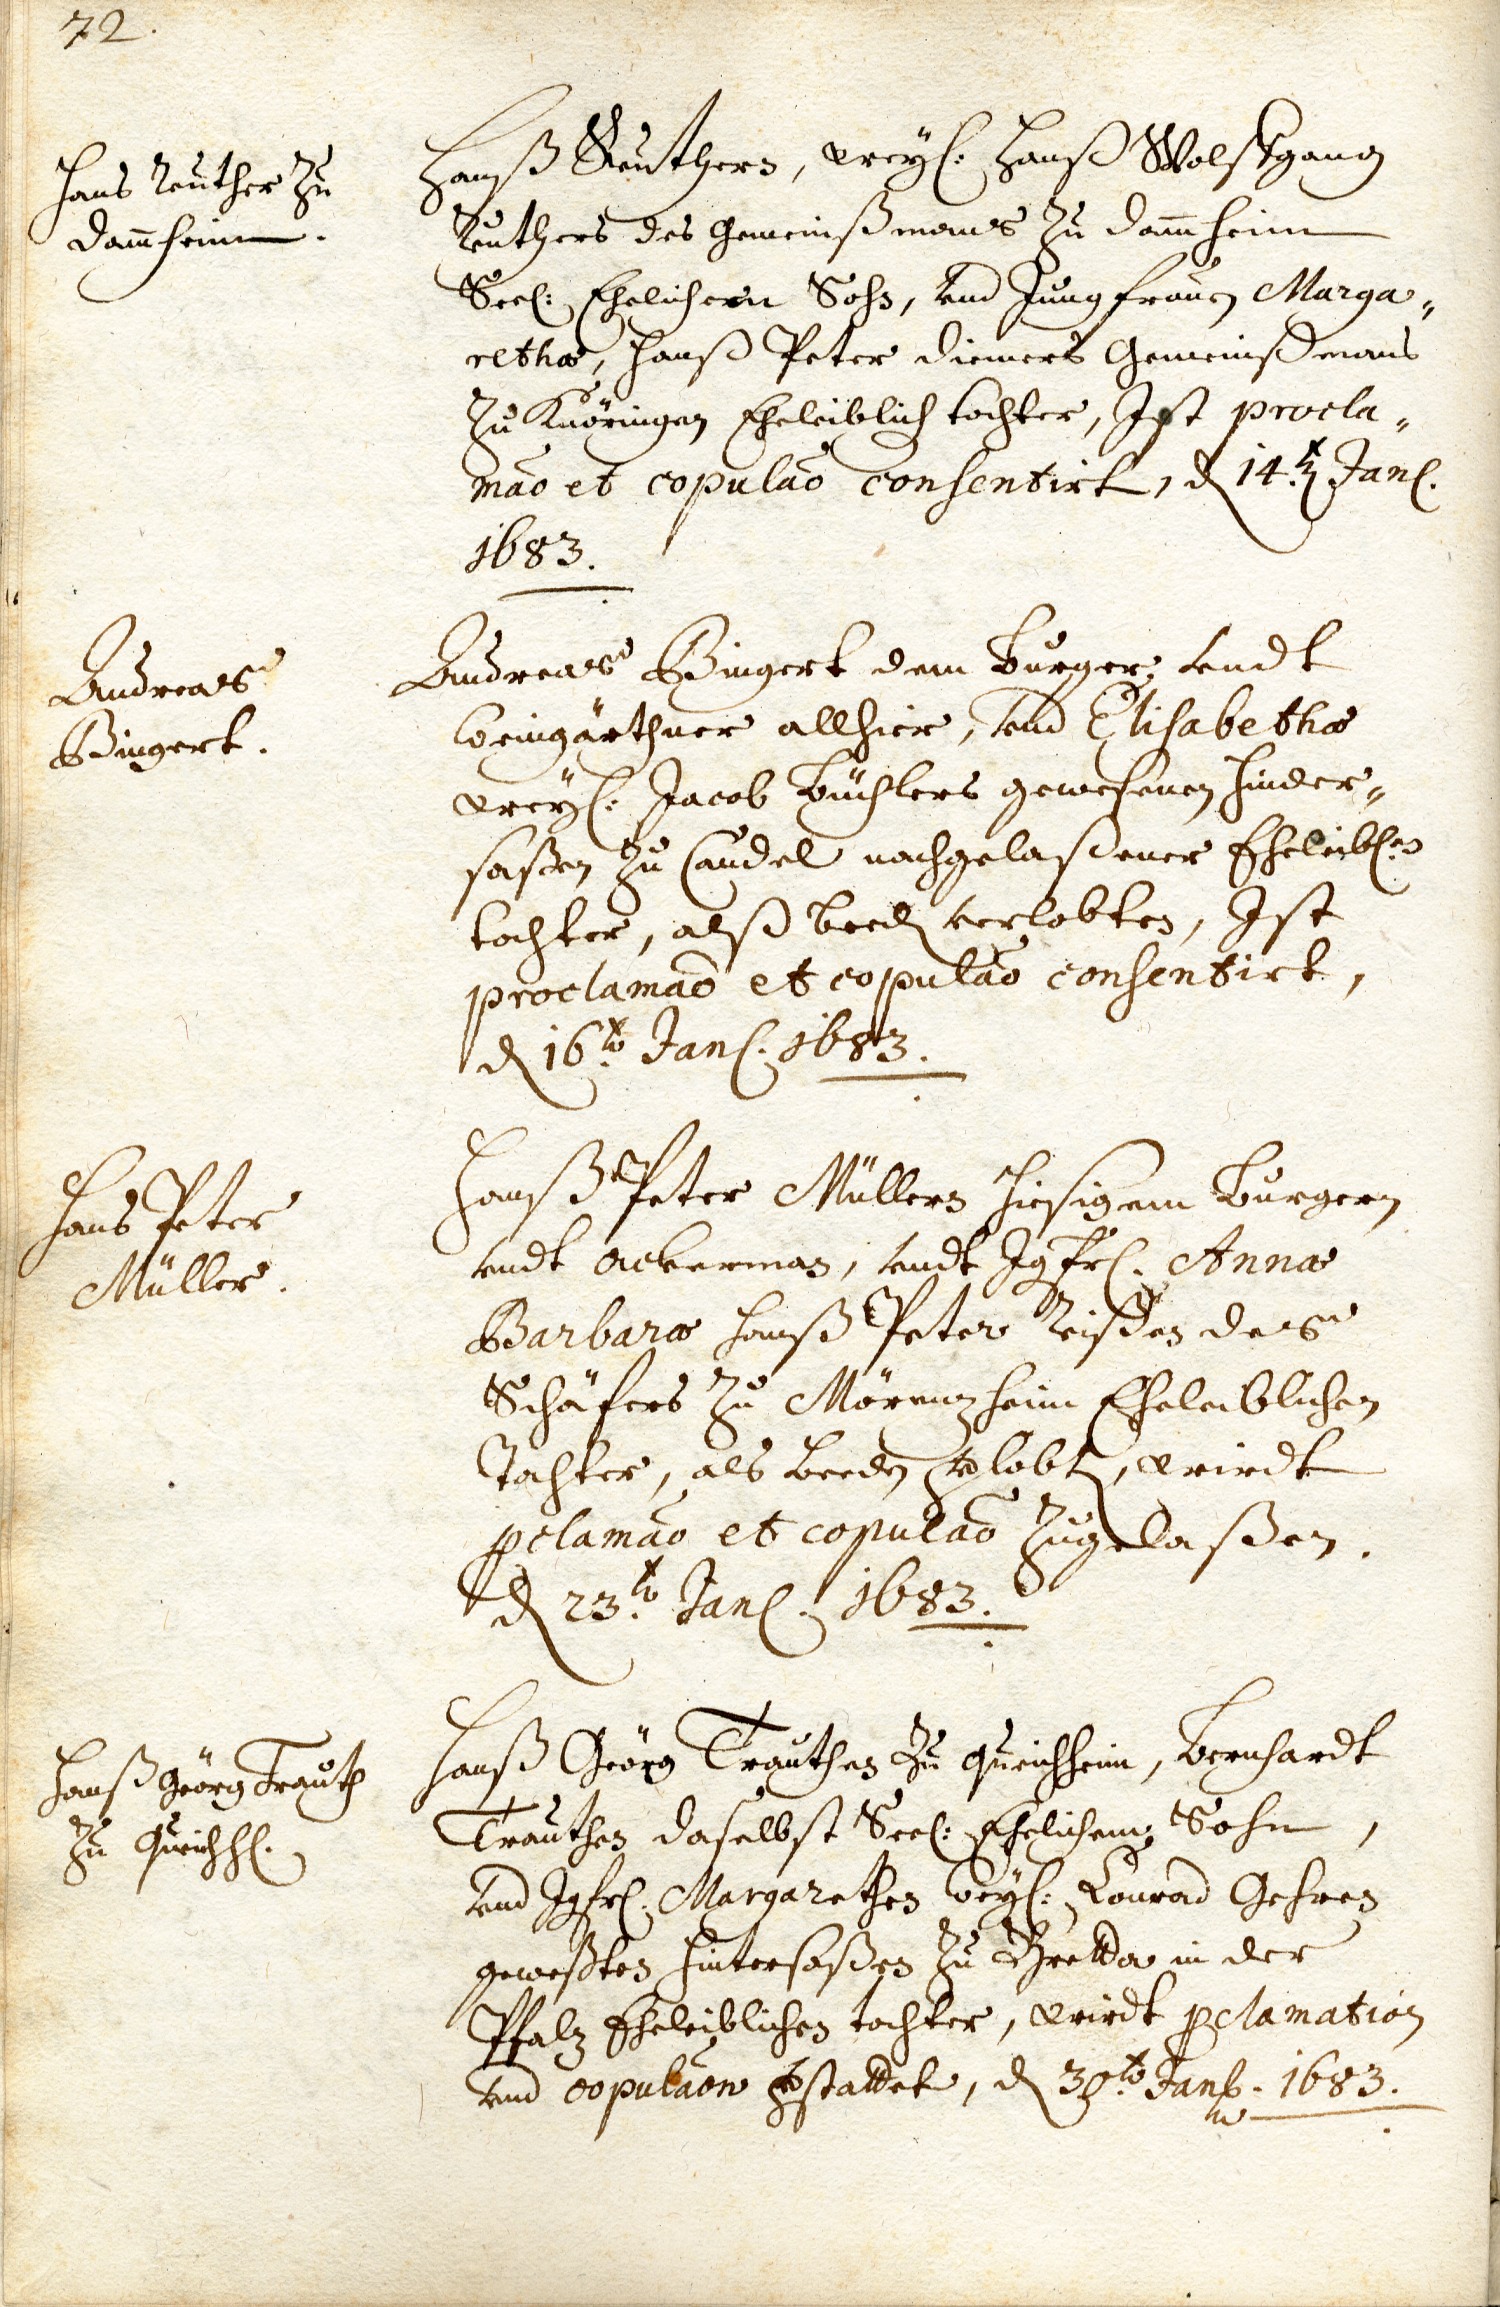 72.
Hans Reuther zu
Dam̃heim.
Hanß Reuthern, weyl: Hanß Wolffgang
Reuthers des Gemeinßmans zu Dam̃heim
Seel: Ehelichem Sohn, und Jungfrauen Marga„
rethæ, Hanß Peter Diemers Gemeinßmans
zu Knöringen Eheleiblich tochter, Ist procla„
mão et copulão consentirt, d 14.t Janl.
1683.
Andreas
Bingert.
Andreas Bingert dem Burger undt
Weingärthner allhier, und Elisabethæ
weyl: Jacob Büchlers gewesenen Hinder„
saßen zu Candel nachgelaßener Eheleibl:en
tochter, alß beed verlobten, Ist
proclamaõ et copulaõ consentirt,
d 16.to Janl. 1683.
Hans Peter
Müller.
Hanß Peter Müllern hiesigem Burgern
undt Ackerman, undt Jgfrl. Annæ
Barbaræ Hanß Peter Reißen des
Schäfers zu Mörenzheim Eheleiblichen
Tochter, als beeden verlobt, wirdt
pclamaõ et copulaõ zugelaßen.
d 23.to Janl. 1683.
Hanß Geörg Trauth
zu Queichhl.
Hanß Geörg Trauthen zu Queichheim, Bernhardt
Trauthen daselbst Seel: Ehelichem Sohn,
und Jgfrl. Margarethen weyl: Conrad Gehren
geweßten Hintersaßen zu in der
Pfalz Eheleiblichen tochter, wirdt pclamation
und copulaõn verstattet, d 30.to Janl. 1683.